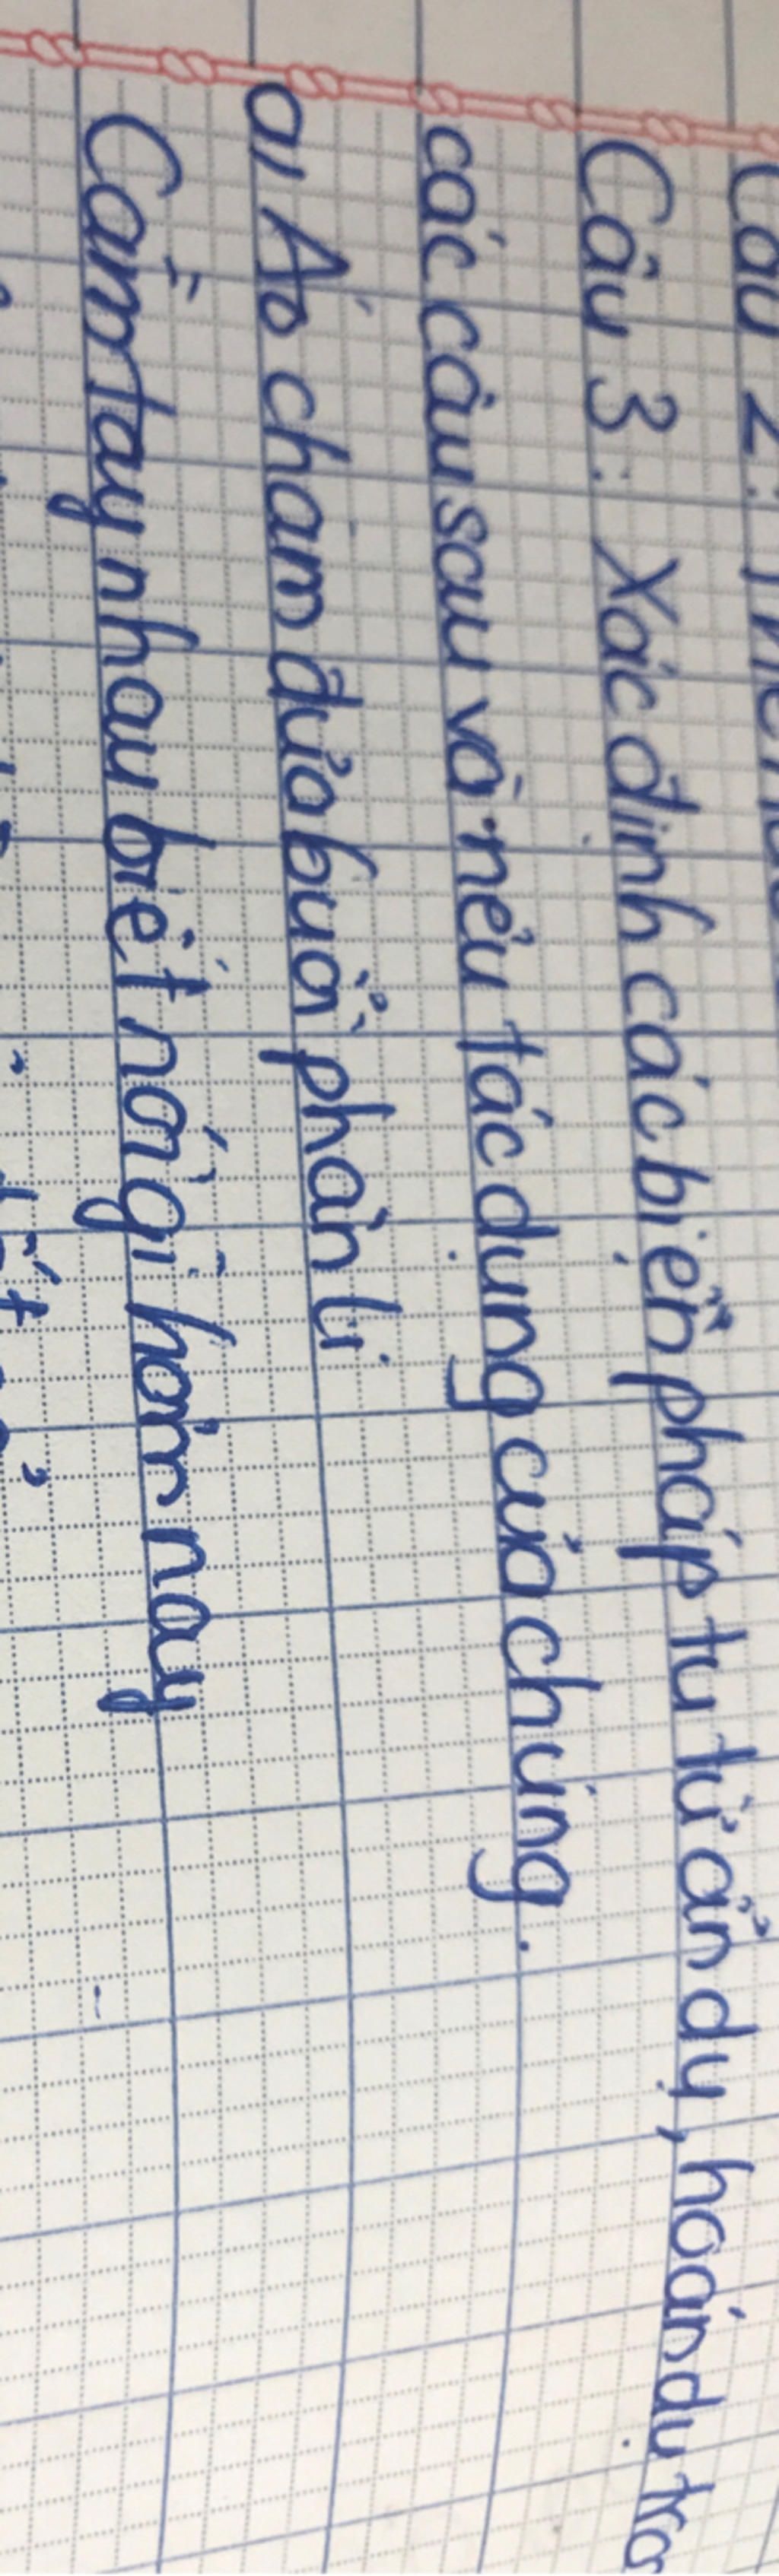 Câu 2:
Câu 3: Xác định các biện pháp tu từ ẩn dụ, hoán dụ tro
các câu sau và nêu tác dụng của chúng.
a, Áo chàm đưa buổi phân li
Cầm tay nhau biết nói gì hôm nay